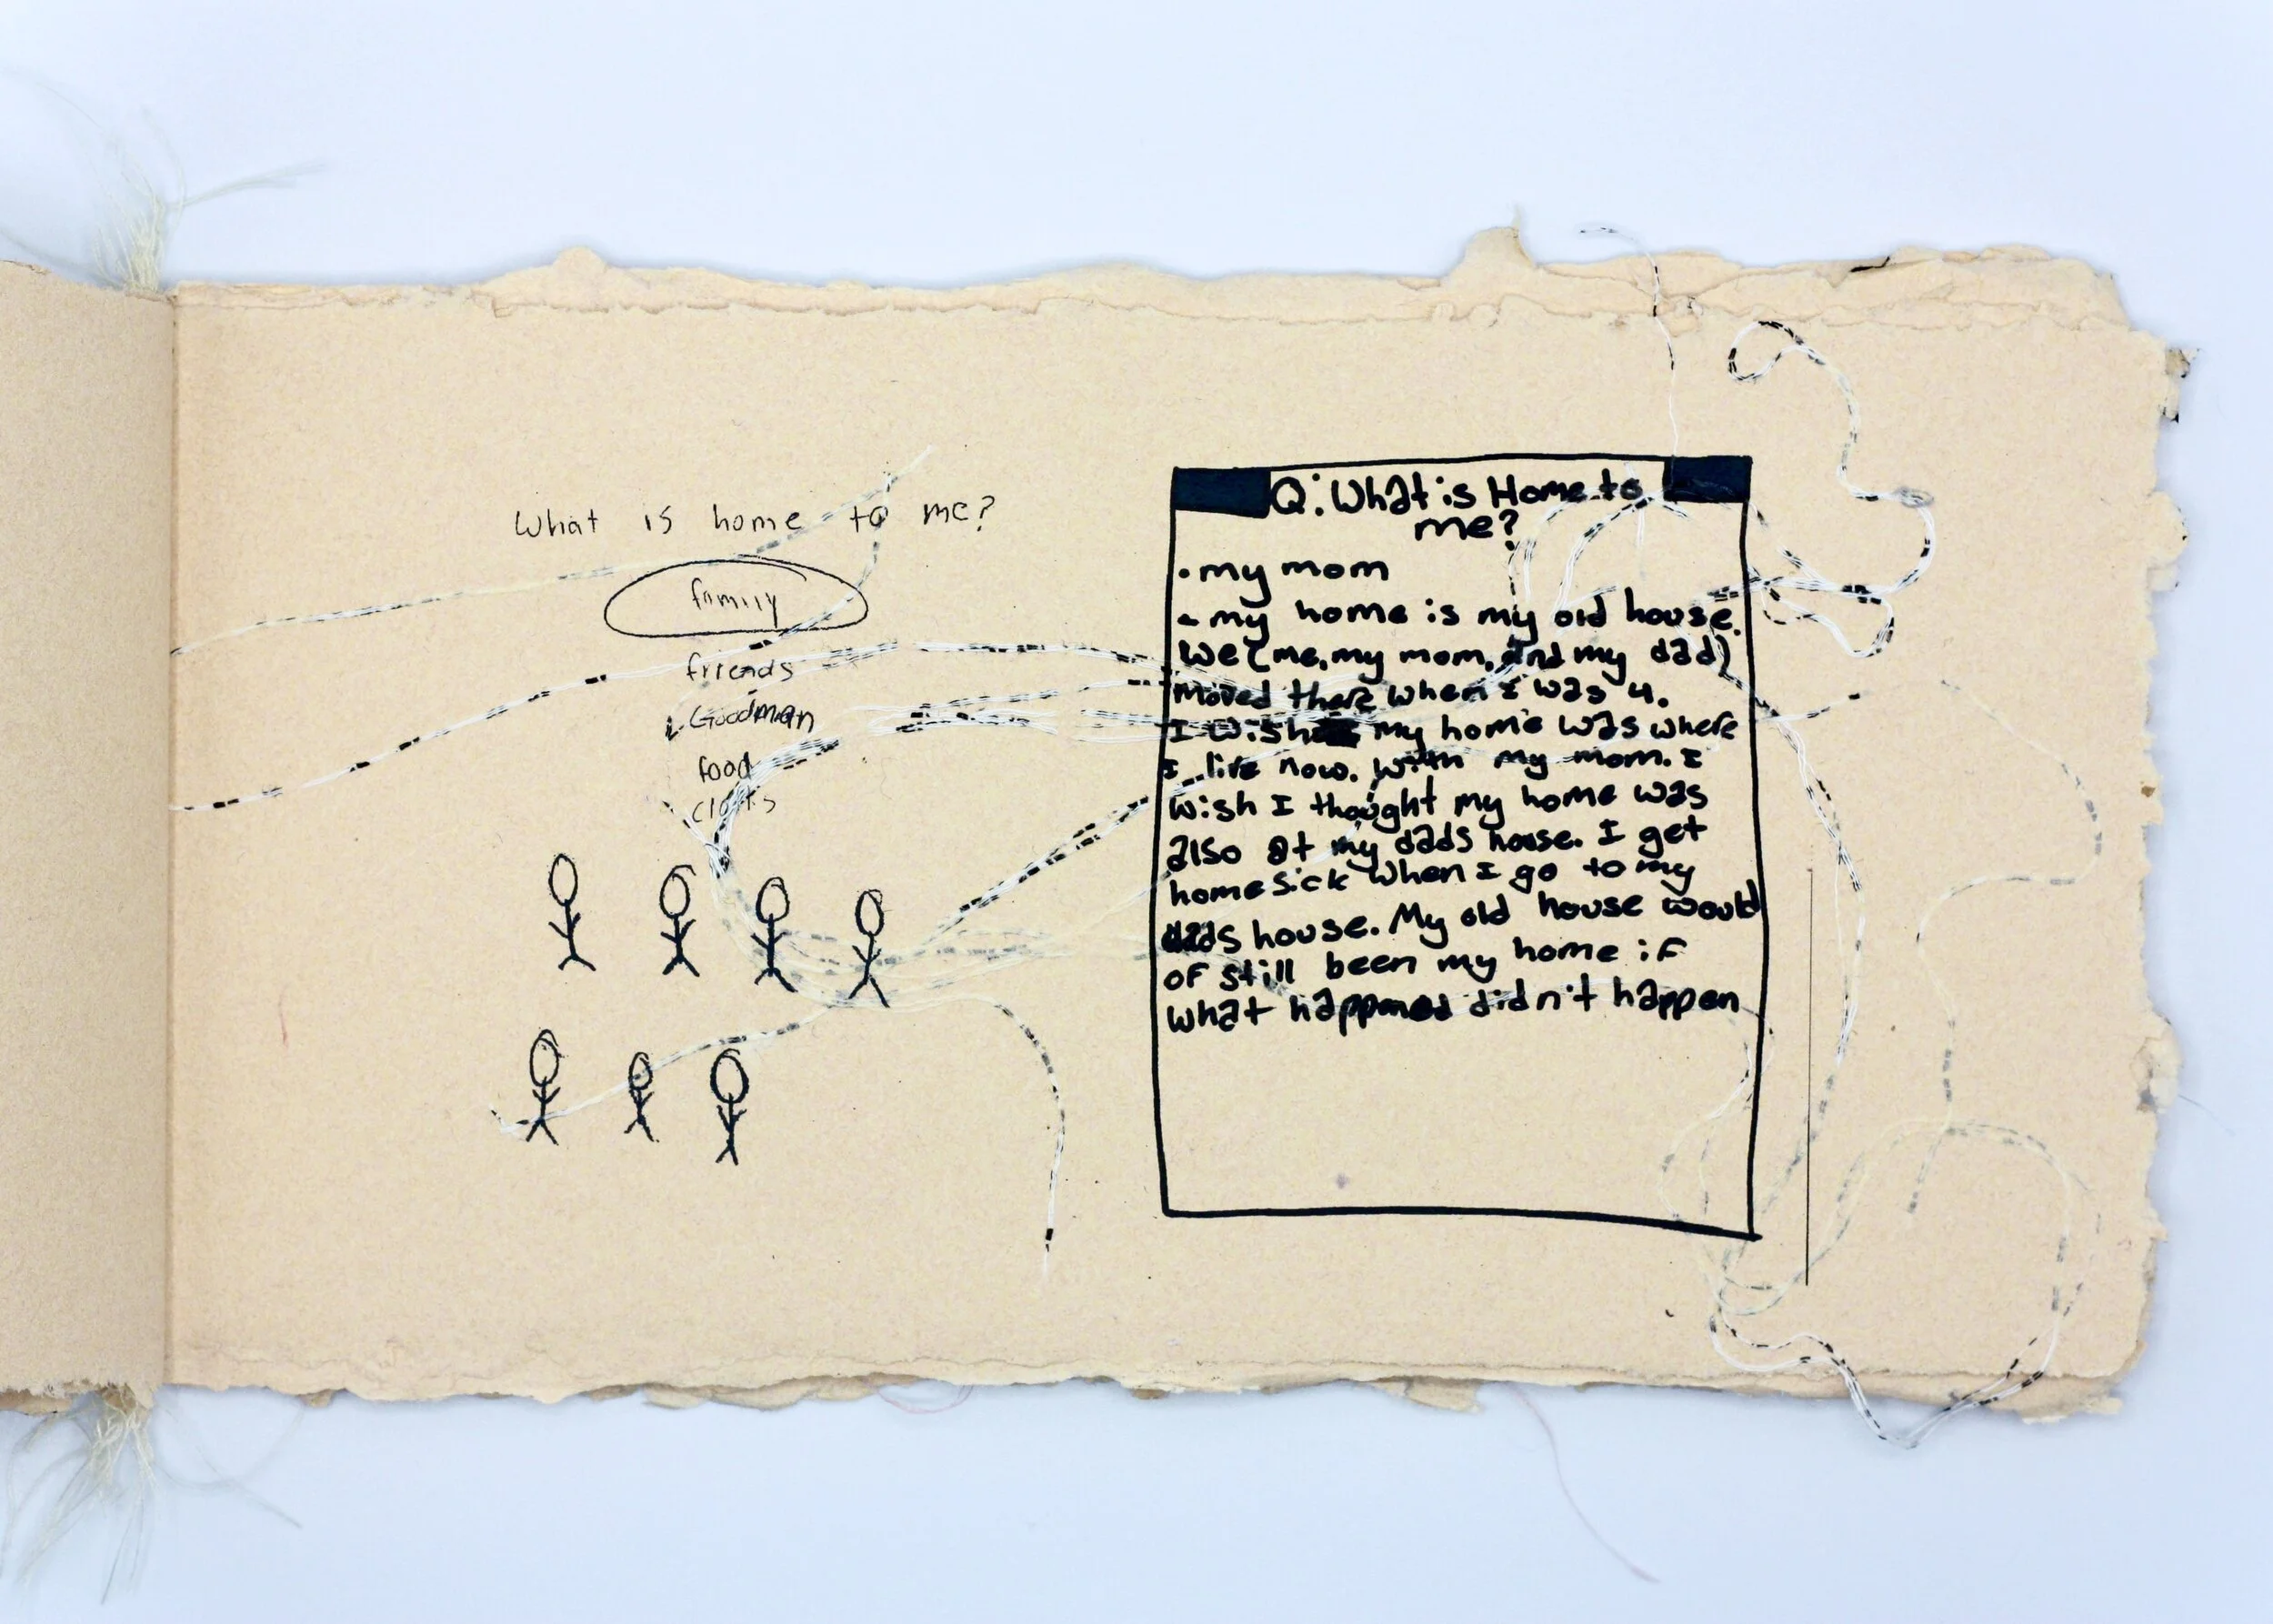 What is home to me?
family
friends
Goodman
food
Q: What is Home to
me?
• my mom
- my home is my old house.
We (me, my mom, and my dad)
moved there when I was 4.
I wish my home was where
I live now. with my mom. I
wish I thought my home was
also at my dads house. I get
homesick when I go to my
dads house. My old house would
of still been my home if
what happened didn't happen